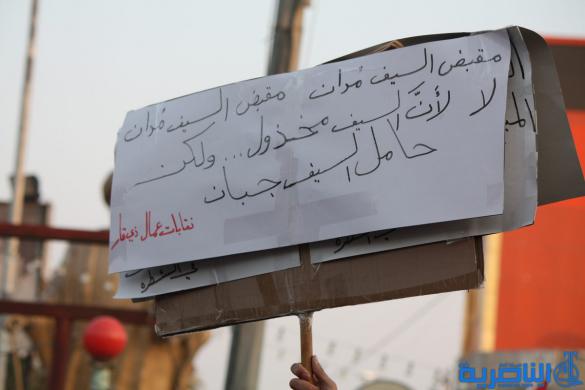 مقبض السيف مُدان مقبض السيف مُدان
لا لأنَّ السيف مخذول... ولكن
حامل السيف جبان
نقابات عمال ذي قار
في الشطره
الناصرية